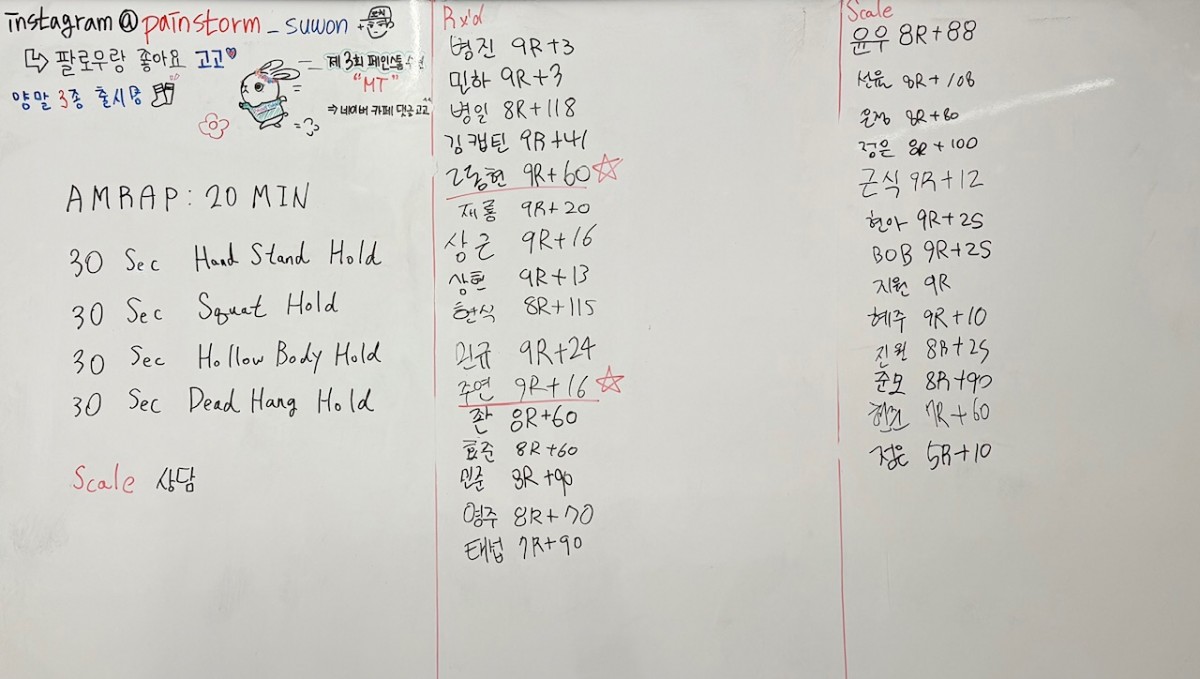 instagram@painstorm_suwon
팔로우랑 좋아요 고고
양말 3종 출시중
제3회 페인스톰 수원
"MT"
⇒ 네이버 카페 댓글 고고
AMRAP: 20 MIN
30 Sec Hand Stand Hold
30 Sec Squat Hold
30 Sec Hollow Body Hold
30 Sec Dead Hang Hold
Scale 상담
Rx'd
병진 9R+3
민하 9R+3
병일 8R+118
김캡틴 9R+41
9R+60
재롱 9R+20
상근 9R+16
상현 9R+13
현식 8R+115
민규 9R+24
주연 9R+16
좐 8R+60
효준 8R+60
민준 8R+90
영주 8R+70
태섭 7R+90
Scale
윤우 8R+88
선윤 8R+108
8R+80
정은 8R+100
근식 9R+12
현아 9R+25
BOB 9R+25
지원 9R
혜주 9R+10
진원 8R+25
준모 8R+90
7R+60
정윤 5R+10